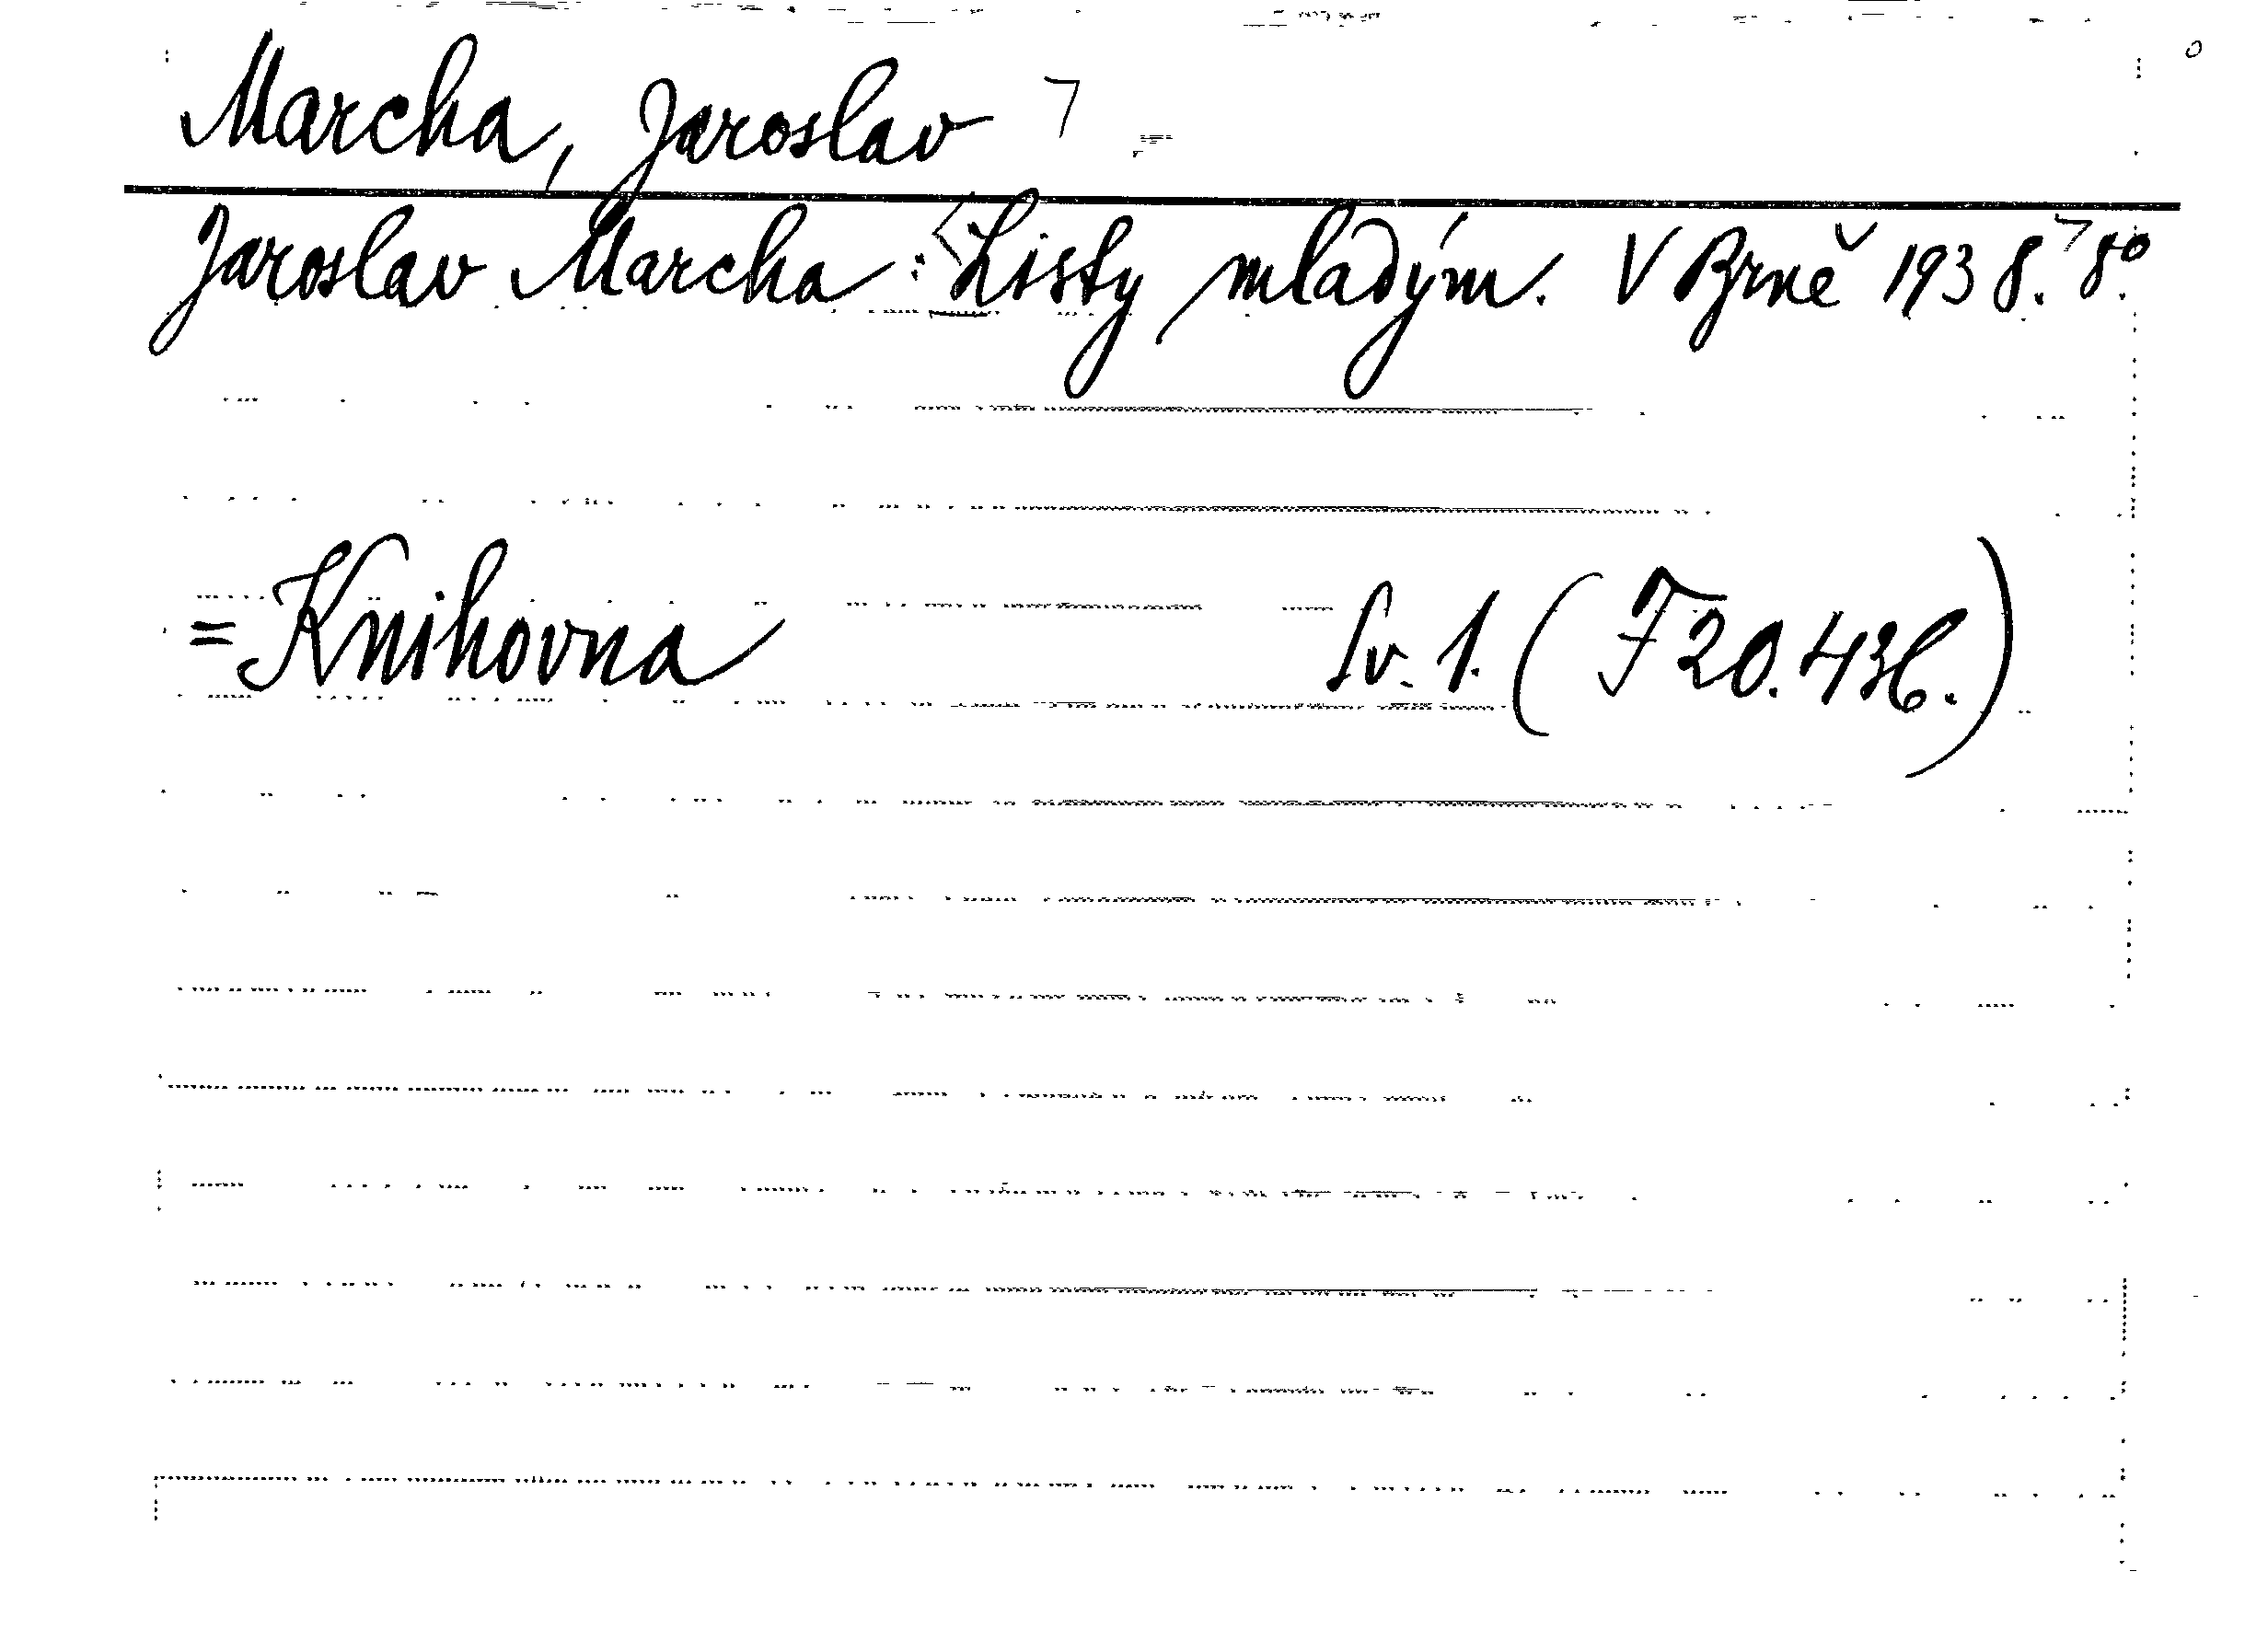 Marcha, Jaroslav
Jaroslav Marcha: Listy mladým. V Brně 1938. 8°.
= Knihovna Sv. 1. (F 20.436.)